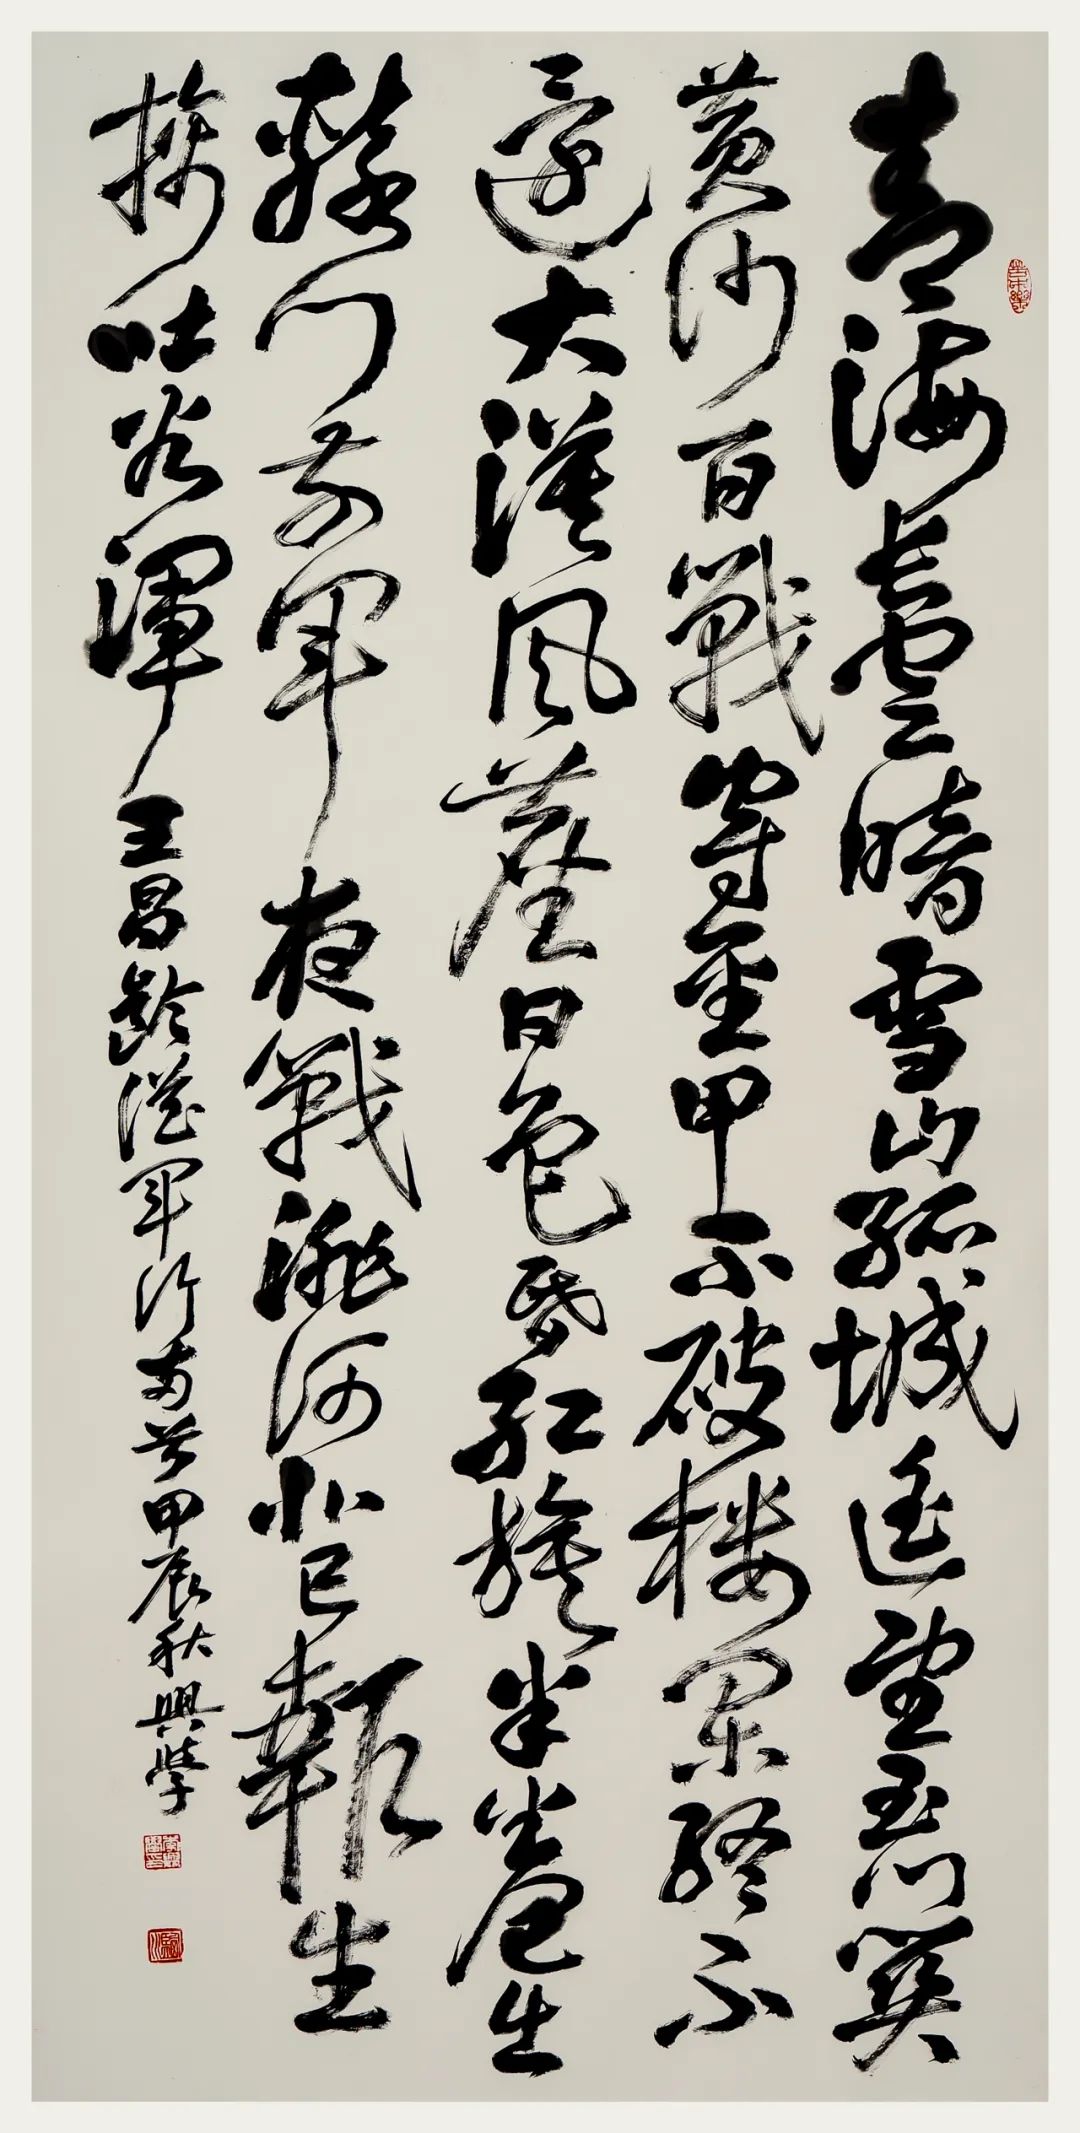 青海長雲暗雪山孤城遙望玉門關
黄沙百戰穿金甲不破楼蘭終不
還大漠風塵日色昏紅旗半卷出
轅門前軍夜戰洮河北已報生
擒吐谷渾王昌齡從軍行兩首甲辰秋興學